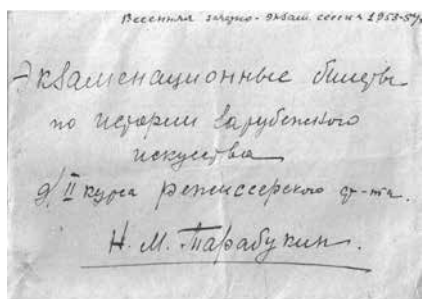 Весенняя зачетно-экзам. сессия 1953-54г.
Экзаменационные билеты
по истории зарубежного
искусства
д/ II курса режиссерского ф-та.
Н. М. Тарабукин.